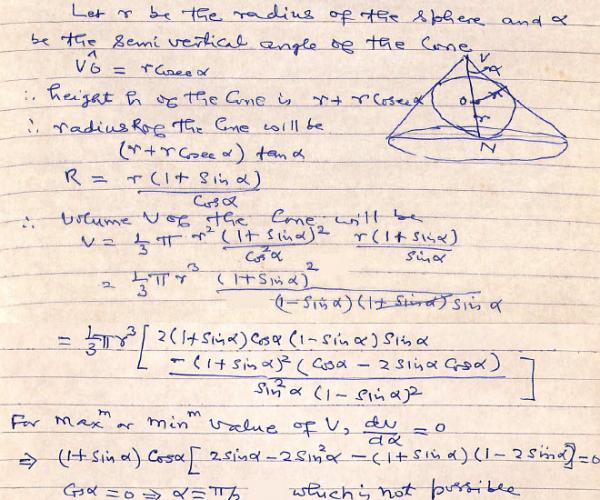 Let r be the radius of the sphere and α
be the semi vertical angle of the Cone
VO = r Cosec α
∴ height h of the Cone is r + r Cosec α
∴ radius R of the Cone will be
(r + r Cosec α) tan α
R = r(1 + Sin α) / Cos α
∴ Volume V of the Cone will be
V = 1/3 π r² (1 + Sin α)² / Cos² α r(1 + Sin α) / Sin α
= 1/3 π r³ (1 + Sin α)² / (1 - Sin α)(1 + Sin α) Sin α
= 1/3 π r³ [ 2(1 + Sin α) Cos α (1 - Sin α) Sin α
- (1 + Sin α)² (Cos α - 2 Sin α Cos α) / Sin² α (1 - Sin α)² ]
For Maxᵐ or minᵐ value of V, dv/dα = 0
⇒ (1 + Sin α) Cos α [ 2 Sin α - 2 Sin² α - (1 + Sin α)(1 - 2 Sin α)] = 0
Cos α = 0 ⇒ α = π/2 which is not possible
V
α
r
O
r
N